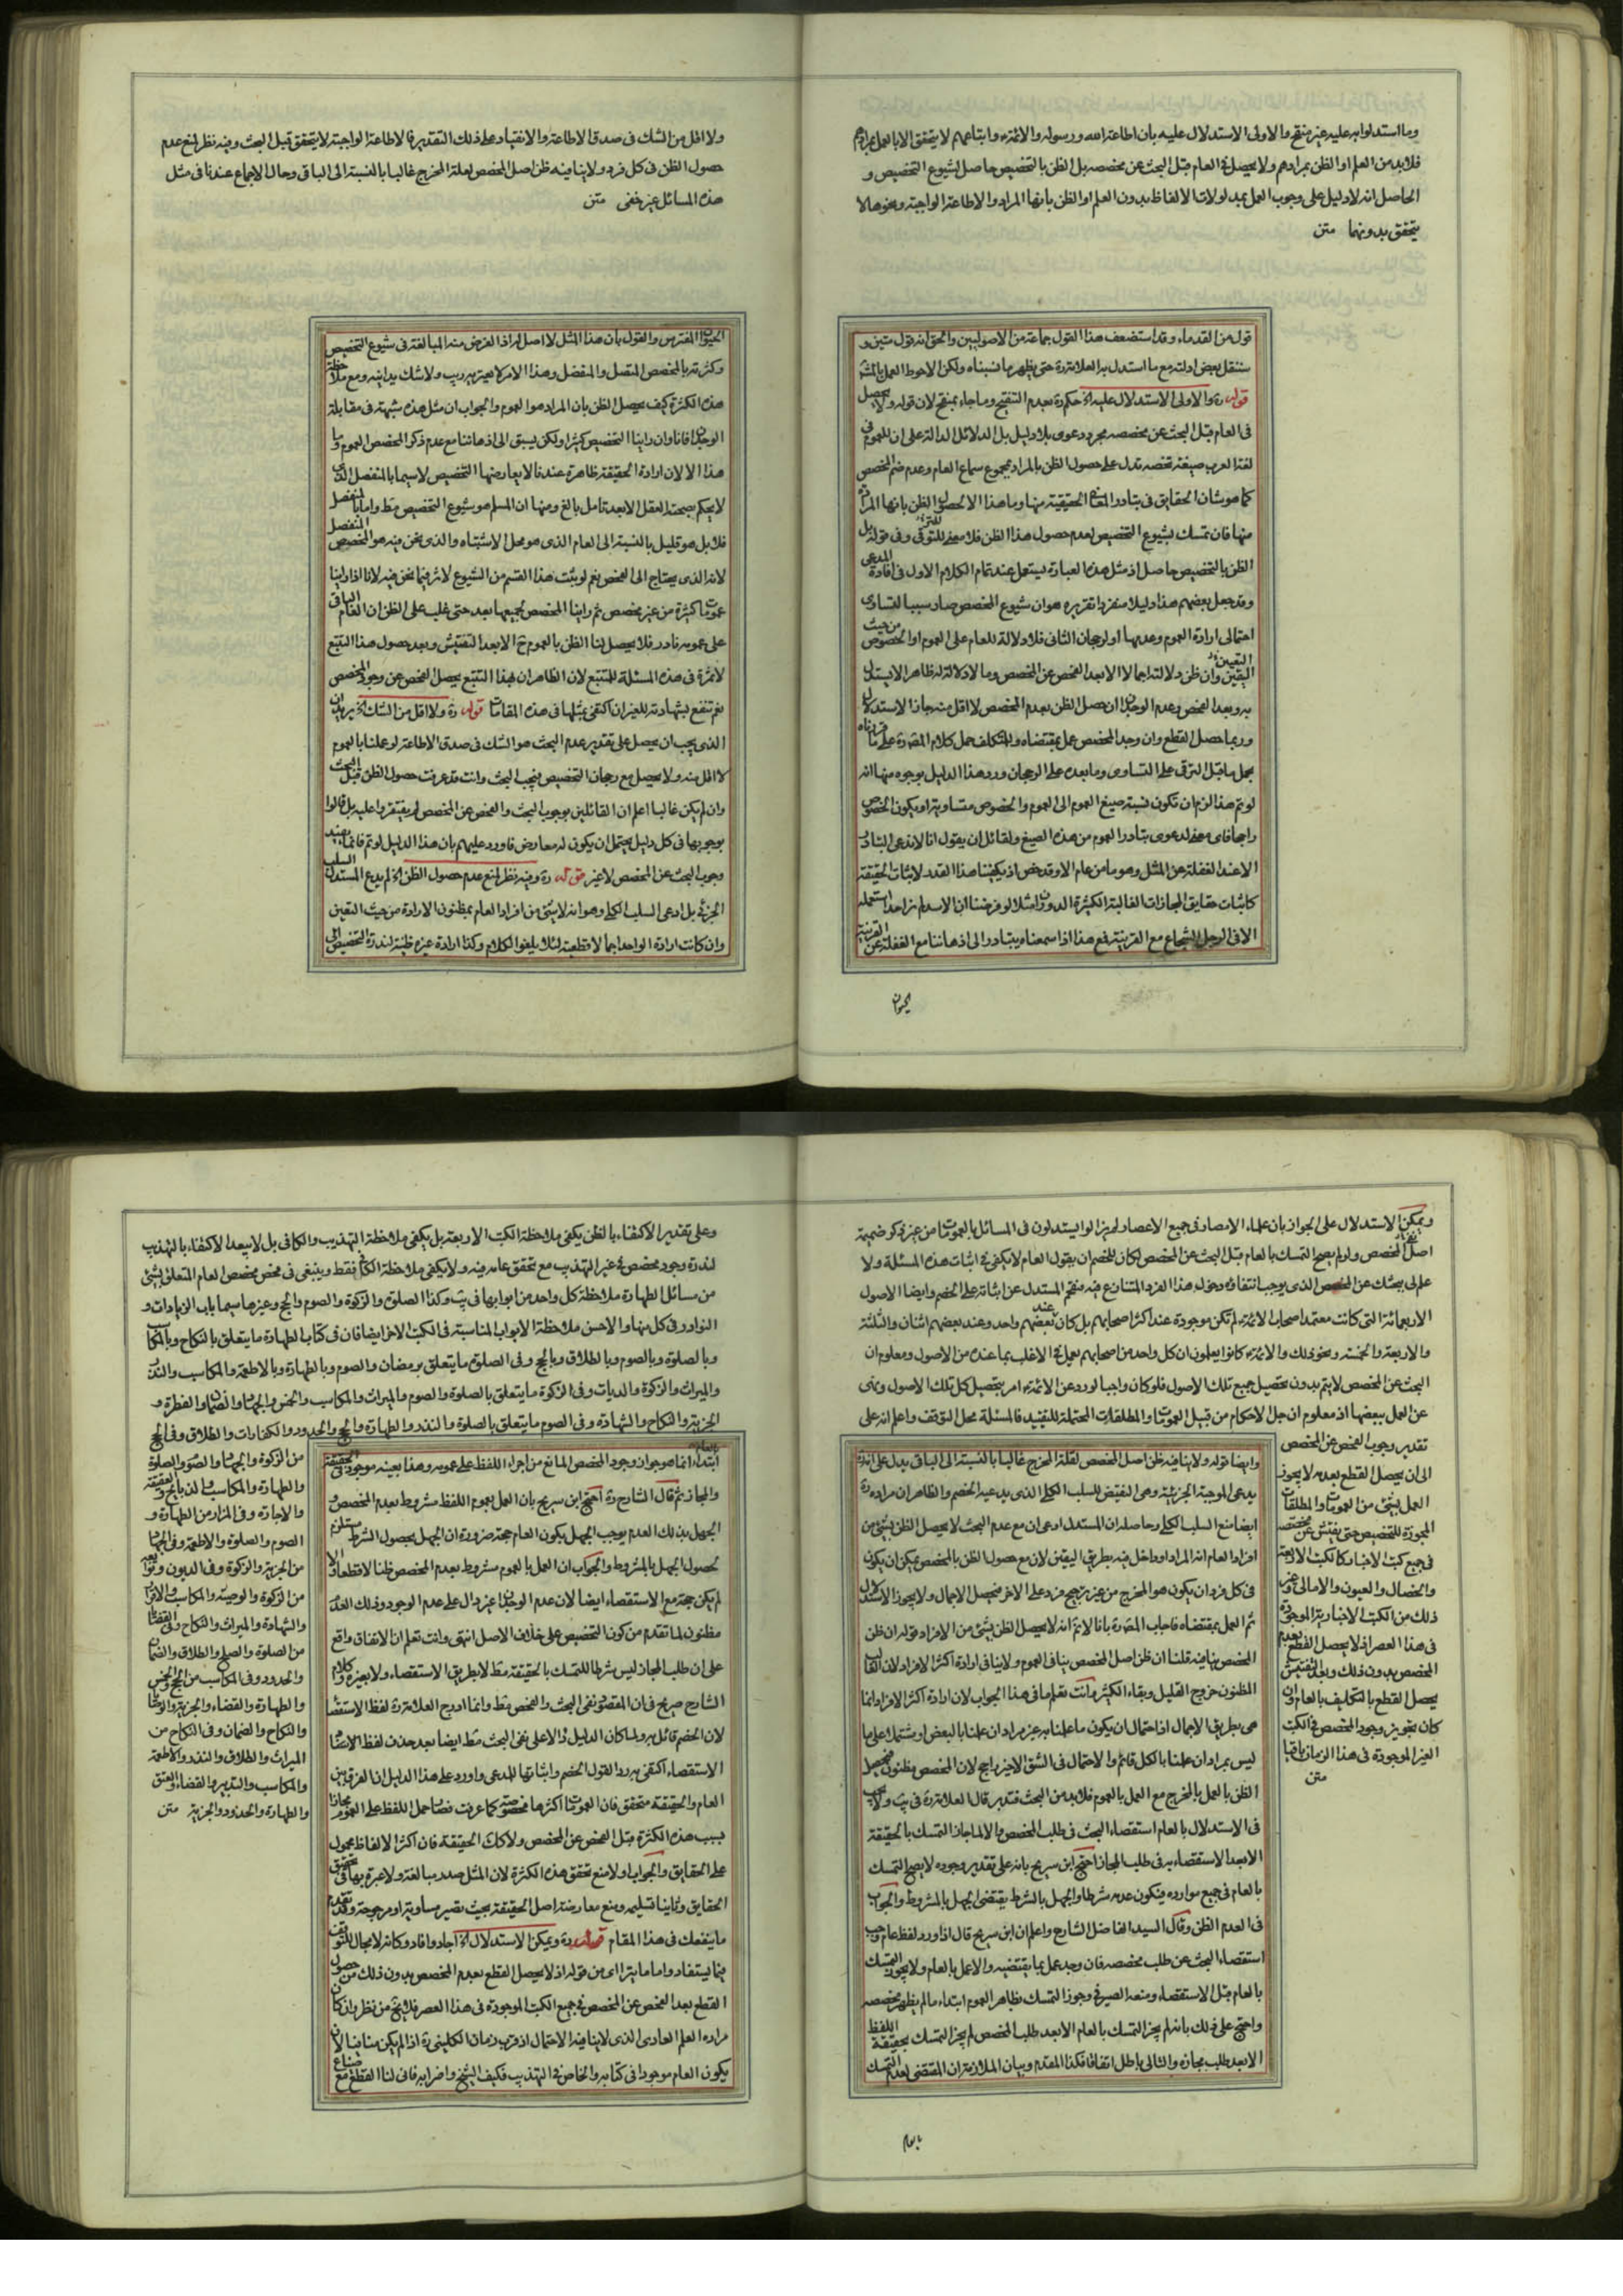 وما استدلوا به عليه غير منقح والاولى الاستدلال عليه بان اطاعة الله ورسوله والائمة وابتاعهم لا يتحقق الا بالعمل بمرادهم
فلابد من العلم او الظن بمرادهم ولا يحصل في العام قبل البحث عن مخصصه بل الظن بالتخصيص حاصل لشيوع التخصيص و
الحاصل انه لا دليل على وجوب العمل بمدلولات الالفاظ بدون العلم او الظن بانها المراد والاطاعة الواجبة ونحوها لا
يتحقق بدونهما متن
قول من القدماء وقد استضعف هذا القول جماعة من الاصوليين والحق انه قول متين و
سننقل بعض ادلته مع ما استدل به العلامة ره حتى يظهر ما نسبناه ولكن الاحوط العمل بالمشهور
قوله ره والاولى الاستدلال عليه الخ حكم ره بعدم التنقيح وما جاء بمنقح لان قوله ولا يحصل
فى العام قبل البحث عن مخصصه مجرد دعوى بلا دليل بل الدلائل الدالة على ان للعموم فى
لغة العرب صيغة تخصه تدل على حصول الظن بالمراد بمجموع سماع العام وعدم ضم المخصص
كما هو شان الحقايق فى تبادر المعانى الحقيقية منها وما هذا الا لحصول الظن بانها المرادة
منها فان تمسك بشيوع التخصيص لعدم حصول هذا الظن فلا معنى للترقى وفى قوله بل
الظن بالتخصيص حاصل اذ مثل هذه العبارة يستعمل عند تمام الكلام الاول فى افادة المدعى
وقد جعل بعضهم هذا دليلا منفردا تقريره هو ان شيوع المخصص صار سببا لتساوى
احتمالى ارادة العموم وعدمها او لرجحان الثانى فلا دلالة للعام على العموم او الخصوص من حيث
اليقين وان ظن دلالته اجمالا الا بعد الفحص عن المخصص وما لا دلالة له ظاهرا لا يستدل
به وبعد الفحص وعدم الوجدان حصل الظن بعدم المخصص لا اقل منه جاز الاستدلال
وربما حصل القطع وان وجد المخصص عمل بمقتضاه وللمتكلف حمل كلام المص ره على ما قررناه
بحمل ما قبل الترقى على التساوى وما بعده على الرجحان ورد هذا الدليل بوجوه منها انه
لو تم هذا لزم ان تكون نسبة صيغ العموم الى العموم والخصوص متساوية او يكون الخصوص
راجحا فاى معنى لدعوى تبادر العموم من هذه الصيغ ولقائل ان يقول انا لا ندعى التبادر
الا عند الغفلة عن المثل وهو ما من عام الا وقد خص اذ يكفينا هذا القدر لاثبات الحقيقة
كاثبات حقايق المجازات الغالبة الكثيرة الدوران مثلا لو فرضنا ان الاسد لم نر احدا استعمله
الا فى الرجل الشجاع مع القرينة فمع هذا اذا سمعناه يتبادر الى اذهاننا مع الغفلة عن القرينة
الحيوان
ولا اقل من الشك فى صدق الاطاعة والانقياد على ذلك التقدير فالاطاعة الواجبة لا يتحقق قبل البحث وفيه نظر لمنع عدم
حصول الظن فى كل فرد ولا ينافيه ظن اصل المخصص لقلة المخرج غالبا بالنسبة الى الباقى وحال الاجماع عندنا فى مثل
هذه المسائل غير خفى متن
الحيوان المفترس والقول بان هذا المثل لا اصل له اذ الغرض منه المبالغة فى شيوع التخصيص
وكثرته بالمخصص المتصل والمنفصل وهذا الامر لا يعتريه ريب ولا شك يدانيه ومع ملاحظة
هذه الكثرة كيف يحصل الظن بان المراد هو العموم والجواب ان مثل هذه شبهة فى مقابلة
الوجدان فانا وان راينا التخصيص كثيرا ولكن يسبق الى اذهاننا مع عدم ذكر المخصص العموم وما
هذا الا لان ارادة الحقيقة ظاهرة عندنا لا يعارضها التخصيص لا سيما بالمنفصل الذى
لا يحكم بصحته العقل الا بعد تامل بالغ ومنها ان المسلم هو شيوع التخصيص مط واما بالمنفصل
فلا بل هو قليل بالنسبة الى العام الذى هو محل الاشتباه والذى نحن فيه هو المخصص المنفصل
لانه الذى يحتاج الى الفحص نعم لو ثبت هذا القسم من الشيوع لاثر فيما نحن فيه لانا اذا راينا
عمومات كثيرة من غير مخصص ثم راينا المخصص لجميعها بعد حتى غلب على الظن ان العام الباقى
على عمومه نادر فلا يحصل لنا الظن بالعموم ح الا بعد التفتيش وبعد حصول هذا التتبع
لا ثمرة فى هذه المسئلة للمتتبع لان الظاهر ان بهذا التتبع يحصل الفحص عن وجود المخصص
نعم تنفع بشهادته للغير ان اكتفى بمثلها فى هذه المقامات قوله ره ولا اقل من الشك الخ يريد ان
الذى يجب ان يحصل على تقدير عدم البحث هو الشك فى صدق الاطاعة لو علمنا بالعموم
لا اقل منه ولا يحصل مع رجحان التخصيص فيجب البحث وانت قد عرفت حصول الظن قبل البحث
وان لم يكن غالبا اعلم ان القائلين بوجوب البحث والفحص عن المخصص لم يفتقروا عليه بل قالوا
بوجوبها فى كل دليل يحتمل ان يكون له معارض فاورد عليهم بان هذا الدليل لو تم فانما يفيد
وجوب البحث عن المخصص لا غير قوله ره وفيه نظر لمنع عدم حصول الظن الخ لم يدع المستدل السلب
الجزئى بل ادعى السلب الكلى وهو انه لا شئ من افراد العام بمظنون الارادة من حيث التعين
وان كانت ارادة الواحد اجمالا قطعية لئلا يلغو الكلام وكذا ارادة غيره ظنية لندرة التخصيص الى
ويمكن الاستدلال على الجواز بان علماء الامصار فى جميع الاعصار لم يزالوا يستدلون فى المسائل بالعمومات من غير ذكر ضميمة
اصل المخصص ولو لم يصح التمسك بالعام قبل البحث عن المخصص لكان للخصم ان يقول العام لا يكفى فى اثبات هذه المسئلة ولا
علم لى ببحثك عن المخصص الذى يوجب انتفاؤه دخول هذا الفرد المتنازع فيه فيفحم المستدل عن اثباته على الخصم وايضا الاصول
الاربعمائة التى كانت معتمد اصحاب الائمة لم تكن موجودة عند اكثر اصحابهم بل كان عند بعضهم واحد وعند بعضهم اثنان والثلثة
والاربعة والخمسة ونحو ذلك والائمة كانوا يعلمون ان كل واحد من اصحابهم يعمل فى الاغلب بما عنده من الاصول ومعلوم ان
البحث عن المخصص لا يتم بدون تحصيل جميع تلك الاصول فلو كان واجبا لورد عن الائمة امر بتحصيل كل تلك الاصول ونهى
عن العمل ببعضها اذ معلوم ان جل الاحكام من قبيل العمومات والمطلقات المحتملة للتقييد فالمسئلة محل التوقف واعلم انه على
تقدير وجوب الفحص عن المخصص
الى ان يحصل القطع بعدمه لا يجوز
العمل بشئ من العمومات والمطلقات
المجوزة للتخصيص حتى يفتش عن مخصصه
فى جميع كتب الاخبار كالكتب الاربعة
والخصال والعيون والامالى وغير
ذلك من الكتب الاخبارية الموجودة
فى هذا العصر اذ لا يحصل القطع بعدم
المخصص بدون ذلك وبعد التفتيش
يحصل القطع بالتكليف بالعام وان
كان تجويز وجود المخصص فى الكتب
الغير الموجودة فى هذا الزمان باقيا
متن
وايضا قوله ولا ينافيه ظن اصل المخصص لقلة المخرج غالبا بالنسبة الى الباقى يدل على انه
يدعى الموجبة الجزئية وهى النقيض للسلب الكلى الذى يدعيه الخصم والظاهر ان مراده ره
ايضا منع السلب الكلى وحاصله ان المستدل ادعى ان مع عدم البحث لا يحصل الظن بشئ من
افراد العام انه المراد او داخل فيه بطريق اليقين لان مع حصول الظن بالمخصص يمكن ان يكون
فى كل فرد ان يكون هو المخرج من غير ترجيح فرد على الاخر فيحصل الاجمال ولا يجوز الاستدلال
ثم العمل بمقتضاه فاجاب المص ره بانا لا نم انه لا يحصل الظن بشئ من الافراد قوله ان ظن
المخصص ينافيه قلنا ان ظن اصل المخصص ينافى العموم ولا ينافى ارادة اكثر الافراد لان الغالب
المظنون خروج القليل وبقاء الكثير وانت تعلم ما فى هذا الجواب لان ارادة اكثر الافراد انما
هى بطريق الاجمال اذ احتمال ان يكون ما علمنا به غير مراد ان علمنا بالبعض او يشتمله على ما
ليس بمراد ان علمنا بالكل قائم والاحتمال فى الشق الاخير راجح لان المخصص مظنون فيحصل
الظن بالعمل بالمخرج مع العمل بالعموم فلابد من البحث فتدبر قال العلامة ره فى يب ولا يجب
فى الاستدلال بالعام استقصاء البحث فى طلب المخصص والا لما جاز التمسك بالحقيقة
الا بعد الاستقصاء به فى طلب المجاز احتج ابن سريج بانه على تقدير وجوده لا يصح التمسك
بالعام فى جميع موارده فيكون عدمه شرطا والجهل بالشرط يقتضى الجهل بالمشروط والجواب
فى العدم الظن وقال السيد الفاضل الشارح واعلم ان ابن سريج قال اذا ورد لفظ عام وجب
استقصاء البحث عن طلب مخصصه فان وجد عمل بما يقتضيه والا عمل بالعام ولا يجوز التمسك
بالعام قبل الاستقصاء ومنعه الصيرفى وجوز التمسك بظاهر العموم ابتداء ما لم يظهر مخصصه
واحتج على ذلك بانه لو لم يجز التمسك بالعام الا بعد طلب المخصص لم يجز التمسك بحقيقة اللفظ
الا بعد طلب مجازه والتالى باطل اتفاقا فكذا المقدم وبيان الملازمة ان المقتضى لعدم التمسك
بالعام
وعلى تقدير الاكتفاء بالظن يكفى ملاحظة الكتب الاربعة بل يكفى ملاحظة التهذيب والكافى بل لا يبعد الاكتفاء بالتهذيب
لندرة وجود مخصص فى غير التهذيب مع تحقق عامه فيه ولا يكفى ملاحظة الكافى فقط وينبغى فى فحص مخصص العام المتعلق بشئ
من مسائل الطهارة ملاحظة كل واحد من ابوابها فى يب وكذا الصلوة والزكوة والصوم والحج وغيرها سيما باب الزيادات و
النوادر فى كل منها والاحسن ملاحظة الابواب المناسبة فى الكتب الاخر ايضا فان فى كتاب الطهارة ما يتعلق بالنكاح وبالمكاسب
وبالصلوة وبالصوم وبالطلاق وبالحج وفى الصلوة ما يتعلق برمضان والصوم وبالطهارة وبالاطعمة والمكاسب والنذر
والميراث والزكوة والديات وفى الزكوة ما يتعلق بالصلوة والصوم والميراث والمكاسب والخمس والجهاد والضمان والفطرة و
الجزية والنكاح والشهادة وفى الصوم ما يتعلق بالصلوة والنذر والطهارة والحج والحدود والكفارات والطلاق وفى الحج
من الزكوة والجهاد والصوم والصلوة
والطهارة والمكاسب والذبايح والعقيقة
والاجارة وفى المزار من الطهارة و
الصوم والصلوة والاطعمة وفى الجهاد
من الجزية والزكوة وفى الديون وتوابعه
من الزكوة والوصية والمكاسب والاقرار
والشهادة والميراث والنكاح وفى القضاء
من الصلوة والصلح والطلاق والضمان
والحدود وفى المكاسب من الحج والخمس
والطهارة والقضاء والجزية والوصايا
والنكاح والضمان وفى النكاح من
الميراث والطلاق والنذر والاطعمة
والمكاسب والتدبير والقضاء والعتق
والطهارة والحدود والجزية متن
بالعام
ابتداء انما هو جواز وجود المخصص المانع من اجراء اللفظ على عمومه وهذا بعينه موجود فى الحقيقة
والمجاز ثم قال الشارح ره احتج ابن سريج بان العمل بعموم اللفظ مشروط بعدم المخصص و
الجهل بذلك العدم يوجب الجهل بكون العام حجة ضرورة ان الجهل بحصول الشرط مستلزم
لحصول الجهل بالمشروط والجواب ان العمل بالعموم مشروط بعدم المخصص ظنا لا قطعا والا
لم يكن حجة مع الاستقصاء ايضا لان عدم الوجدان غير دال على عدم الوجود وذلك العدم
مظنون لما تقدم من كون التخصيص على خلاف الاصل انتهى وانت تعلم ان الاتفاق واقع
على ان طلب المجاز ليس شرطا للتمسك بالحقيقة مط لا بطريق الاستقصاء ولا بغيره وكلام
الشارح صريح فى ان المقصود نفى البحث والفحص مط وانما ادرج العلامة ره لفظ الاستقصاء
لان الخصم قائل به ولما كان الدليل دالا على نفى البحث مط ايضا بعد حذف لفظ الاستقصاء
الاستقصاء اكتفى به رد القول الخصم واثباتا للمدعى واورد على هذا الدليل ان الفرق بين
العام والحقيقة متحقق فان العمومات اكثرها مخصوص كما عرفت فصار حمل اللفظ على العموم مجازا
بسبب هذه الكثرة قبل الفحص عن المخصص ولا كك الحقيقة فان اكثر الالفاظ محمول
على الحقايق والجواب اولا منع تحقق هذه الكثرة لان المثل صدر مبالغة ولا عبرة بها فى تحقيق
الحقايق وثانيا تسليمه ومنع معارضته اصل الحقيقة بحيث تصير مساوية او مرجوحة وقد تقدم
ما ينفعك فى هذا المقام قوله ره ويمكن الاستدلال الخ اجاد وافاد وكانه لا مجال للتوقف
فيما يستفاد واما ما يترااى من قوله اذ لا يحصل القطع بعدم المخصص بدون ذلك من حصول
القطع بعد الفحص عن المخصص فى جميع الكتب الموجودة فى هذا العصر فلا يخ من نظر وان كان
مراده العلم العادى الذى لا ينافيه الاحتمال اذ قرب زمان الكلينى ره اذا لم يكن منافيا لان
يكون العام موجودا فى كتابه والخاص فى التهذيب فكيف الشيخ واضرابه فانى لنا القطع مع ضياع